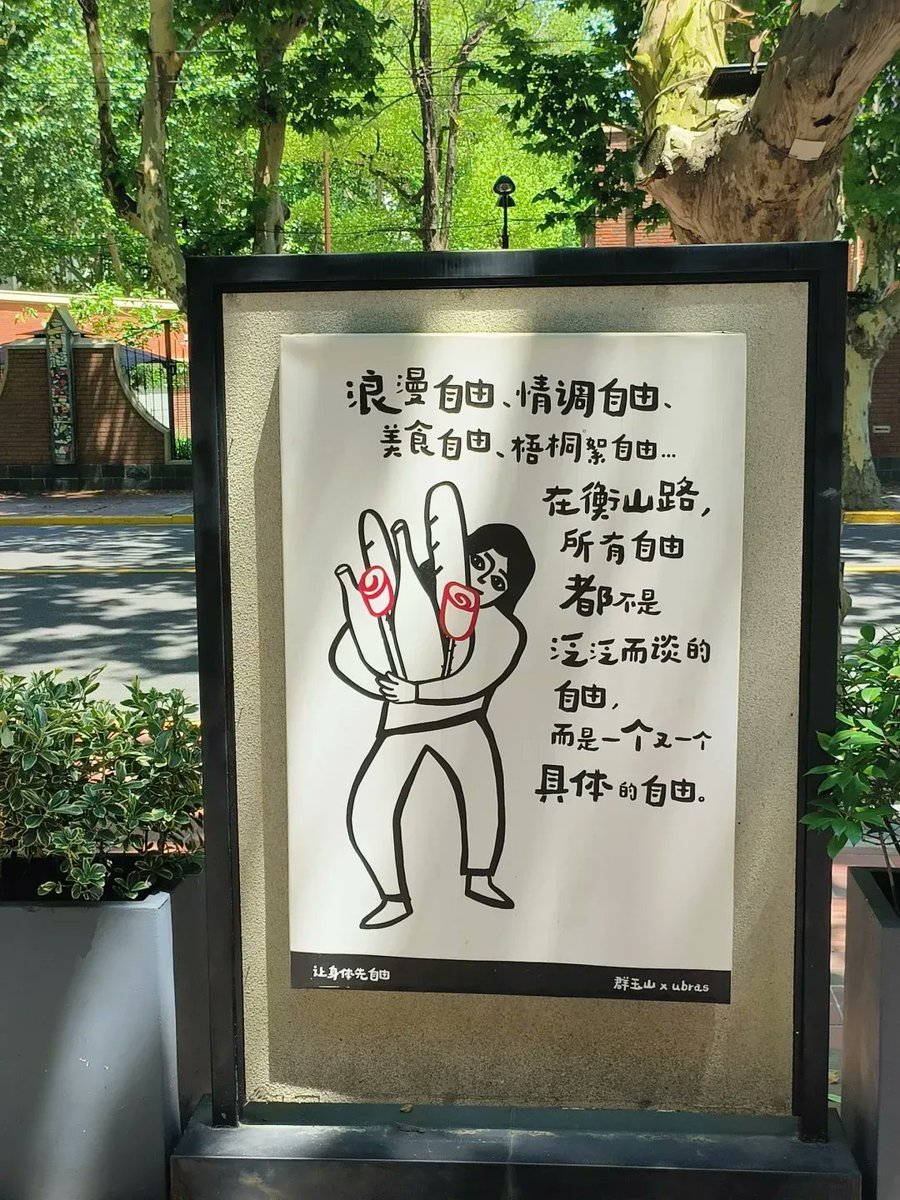 浪漫自由、情调自由、
美食自由、梧桐絮自由...
在衡山路,
所有自由
都不是
泛泛而谈的
自由,
而是一个又一个
具体的自由。
让身体先自由
群玉山 x ubras